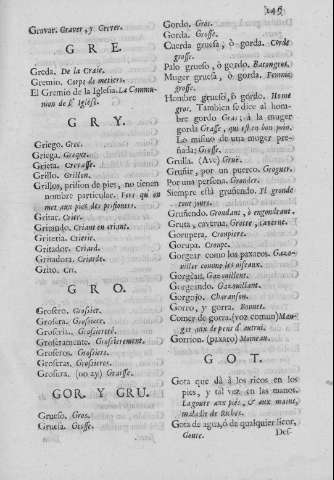 245
Gravar. Graver, y Grever.
G R E.
Greda. De la Craie.
Gremio. Corps de metiers.
El Gremio de la Iglesia. La Commu-
nion de l' Iglesi.
G R Y.
Griego. Grec.
Griega. Greque.
Grieta. Crevasse.
Grillo. Grillon.
Grillos, prision de pies, no tienen
nombre particular. Fers qu'on
met aux pies des prisoniers.
Gritar. Crier.
Gritando. Criant en criant.
Griteria. Crierie.
Gritador. Criard.
Gritadora. Criarde.
Grito. Cri.
G R O.
Grosero. Grosier.
Grosera. Grosiere.
Groseria. Grosiereté.
Groseramente. Grosierement.
Groseros. Grosiers.
Groseras. Grosieres.
Grosura. (no ay) Graisse.
GOR. Y GRU.
Grueso. Gros.
Gruesa. Grosse.
Gordo. Gras.
Gorda. Grosse.
Cuerda gruesa, ò gorda. Corde
grosse.
Palo grueso, ò gordo. Batongros.
Muger gruesa, ò gorda. Femme
grosse.
Hombre grueso, ò gordo. Home
gros. Tambien se dice al hom-
bre gordo Gras; à la muger
gorda Grasse, qui est en bon poin.
Lo mismo de una muger pre-
ñada; Grosse.
Grulla. (Ave) Gruë.
Gruñir, por un puerco. Grogner.
Por una persona. Gronder.
Siempre està gruñendo. Il gronde
tout jours.
Gruñendo. Grondant, ò engrondant.
Gruta, caverna. Grotte, caverne.
Gorupera. Croupiere.
Gorupa. Croupe.
Gorgear como los paxaros. Gazo-
uiller comme les oiseaux.
Gorgean. Gazouillent.
Gorgeando. Gazouillant.
Gorgojo. Charanson.
Gorro, y gorra. Bonnet.
Comer de gorra. (voz comun) Man-
ger aux depens d'autrui.
Gorrion. (paxaro) Moineau.
G O T.
Gota que dà à los ricos en los
pies, y tal vez en las manos.
Lagoute aux piés, & aux mains,
maladie de Riches.
Gota de agua, ò de qualquier licor,
Goute. Des-